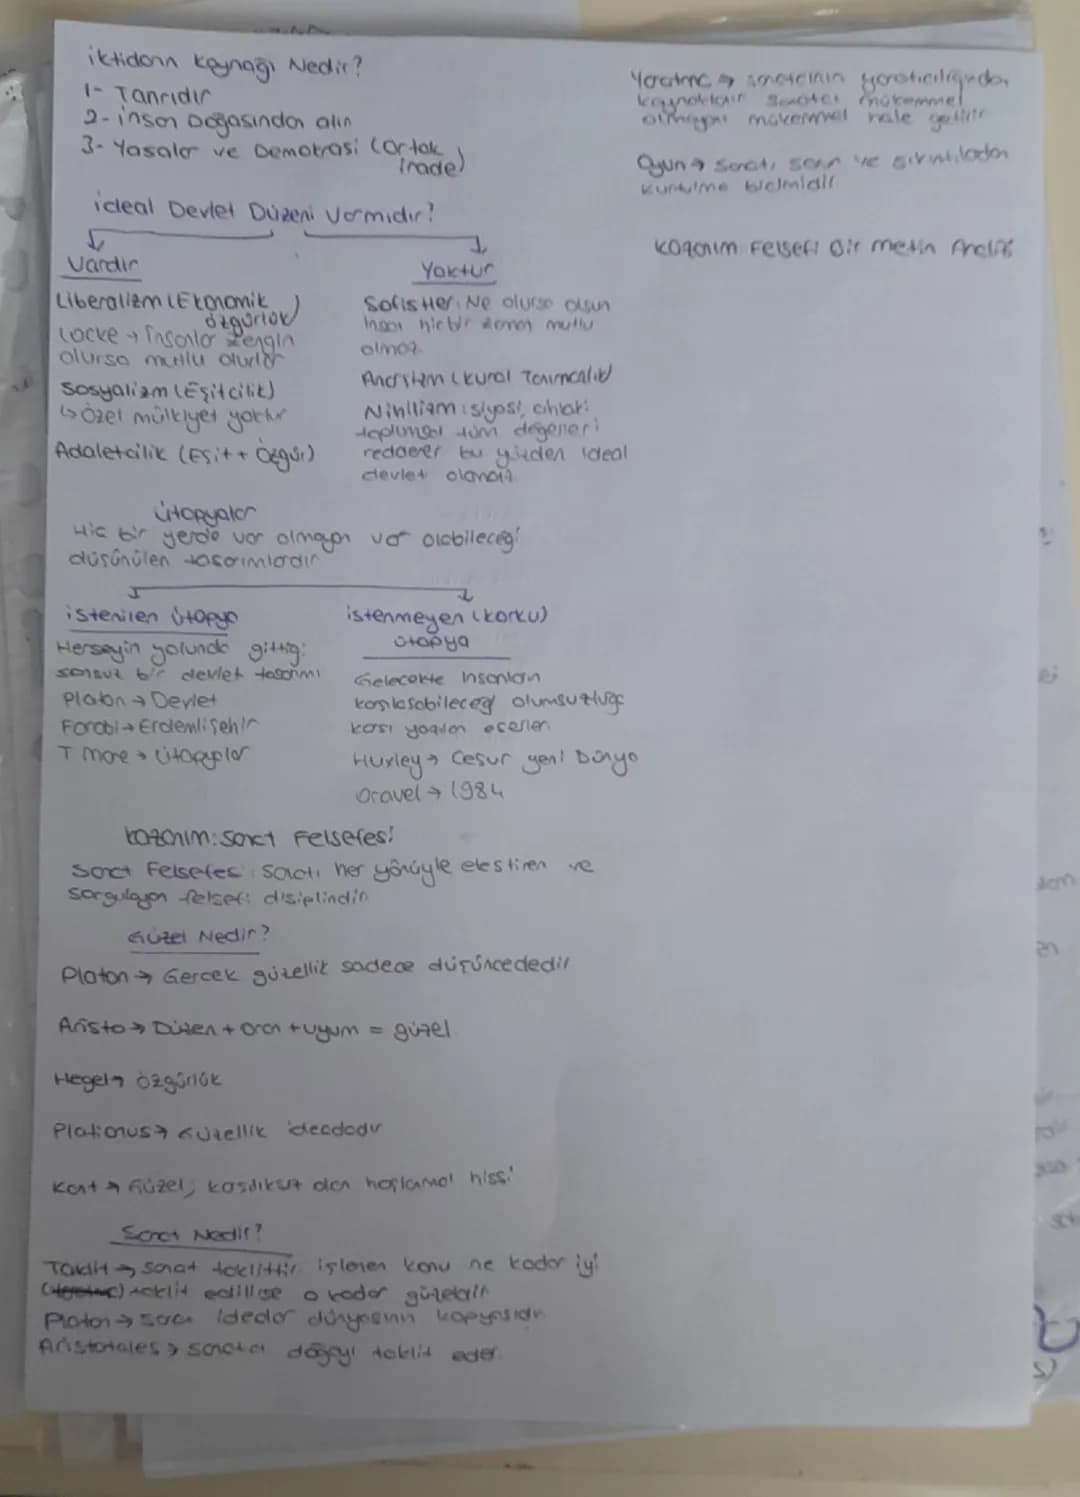 iktidarın kaynağı Nedir?
1- Tanrıdır
2- insan Doğasından alın
3- Yasalar ve Demokrasi (ortak irade)
ideal Devlet Düzeni Varmıdır?
Vardır
Liberalizm (Ekonomik özgürlük)
Locke → insanlar zengin
olursa mutlu olurlar
Sosyalizm (Eşitcilik)
↳ özel mülkiyet yoktur
Adaletcilik (Eşit + Özgür)
Yoktur
Sofistler: Ne olursa olsun
insan hiçbir zaman mutlu
olmaz
Anarşizm (kural Tanımcalık)
Nihilizm: siyasi, ahlaki
toplumsal tüm değerleri
reddeder bu yüzden ideal
devlet olamaz
ütopyalar
Hiç bir yerde var olmayan var olabileceği
düşünülen tasarımlardır
istenilen ütopya
Herşeyin yolunda gittiği
sorunsuz bir devlet tasarımı
Platon → Devlet
Farabi → Erdemli şehir
T more → ütopyalar
istenmeyen (korku)
ütopya
Gelecekte insanların
karşılaşabileceği olumsuzluğa
karşı yazılan eserler
Huxley → Cesur yeni Dünya
Oravel → 1984
kazanım: sanat Felsefesi
Sanat Felsefesi: Sanatı her yönüyle eleştiren ve
sorgulayan felsefi disiplindir
Güzel Nedir?
Platon → Gercek güzellik sadece düşüncededir
Aristo → Düzen + oran + uyum = güzel
Hegel → özgürlük
Plationus → Güzellik ideadadır
Kant → Güzel; karşılıksız olan hoşlanma hissi
Sanat Nedir?
Taklit → sanat taklittir işlenen konu ne kadar iyi
taklit edilirse o kadar güzeldir
Platon → sanat idealar dünyasının kopyasıdır
Aristotales → sanatcı doğayı taklit eder.
Yaratma → sanatcının yaratıcılığından
kaynaklanır Sanatcı mükemmel
olmayanı mükemmel hale getirir
Oyun → Sanat, sorun ve sıkıntılardan
kurtulma biçimidir
kazanım Felsefi Bir metin Analizi